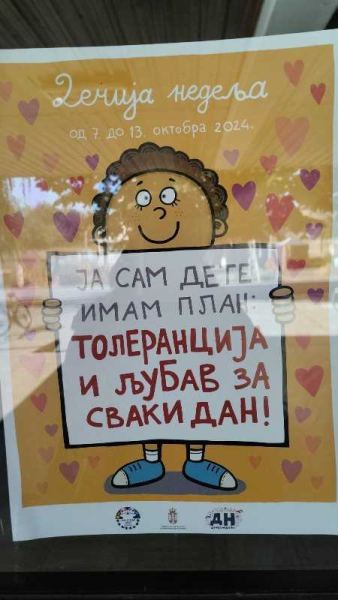 Дечија недеља
од 7. до 13. октобра 2024.
ЈА САМ ДЕТЕ
ИМАМ ПЛАН:
ТОЛЕРАНЦИЈА
И ЉУБАВ ЗА
СВАКИ ДАН!
ДН